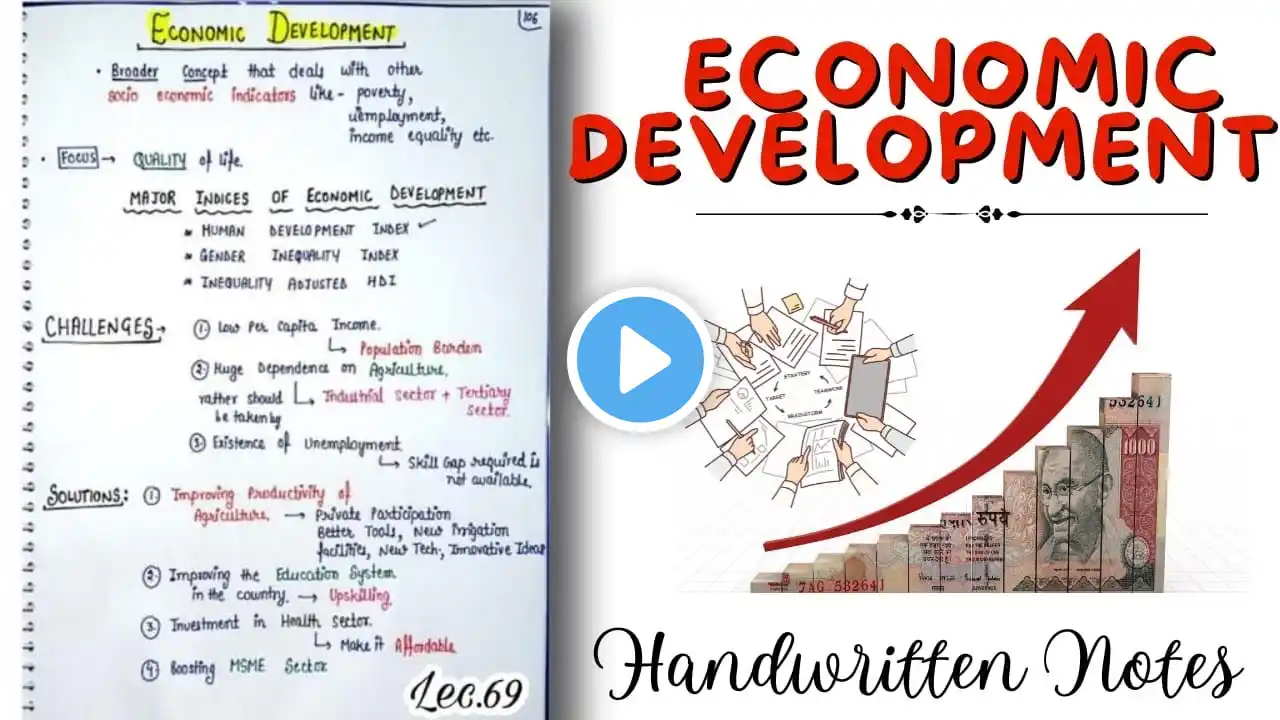 ECONOMIC DEVELOPMENT
106
• Broader Concept that deals with other
socio economic indicators like - poverty,
uemployment,
income equality etc.
• FOCUS → QUALITY of life.
MAJOR INDICES OF ECONOMIC DEVELOPMENT
HUMAN DEVELOPMENT INDEX ✓
GENDER INEQUALITY INDEX
INEQUALITY ADJUSTED HDI
CHALLENGES → ① Low Per Capita Income.
↳ Population Burden
② Huge Dependence on Agriculture.
rather should ↳ Industrial Sector + Tertiary
be taken by Sector.
③ Existence of Unemployment
↳ Skill Gap required is
not available.
SOLUTIONS: ① Improving Productivity of
Agriculture. → Private Participation
Better Tools, New Irrigation
facilities, New Tech., Innovative Ideas
② Improving the Education System
in the country. → Upskilling
③ Investment in Health Sector.
↳ Make it Affordable
④ Boosting MSME Sector
Lec.69
ECONOMIC
DEVELOPMENT
STRATEGY
TARGET TEAMWORK
BRAINSTORM
532641
1000
रुपये
7AG 532641
Handwritten Notes